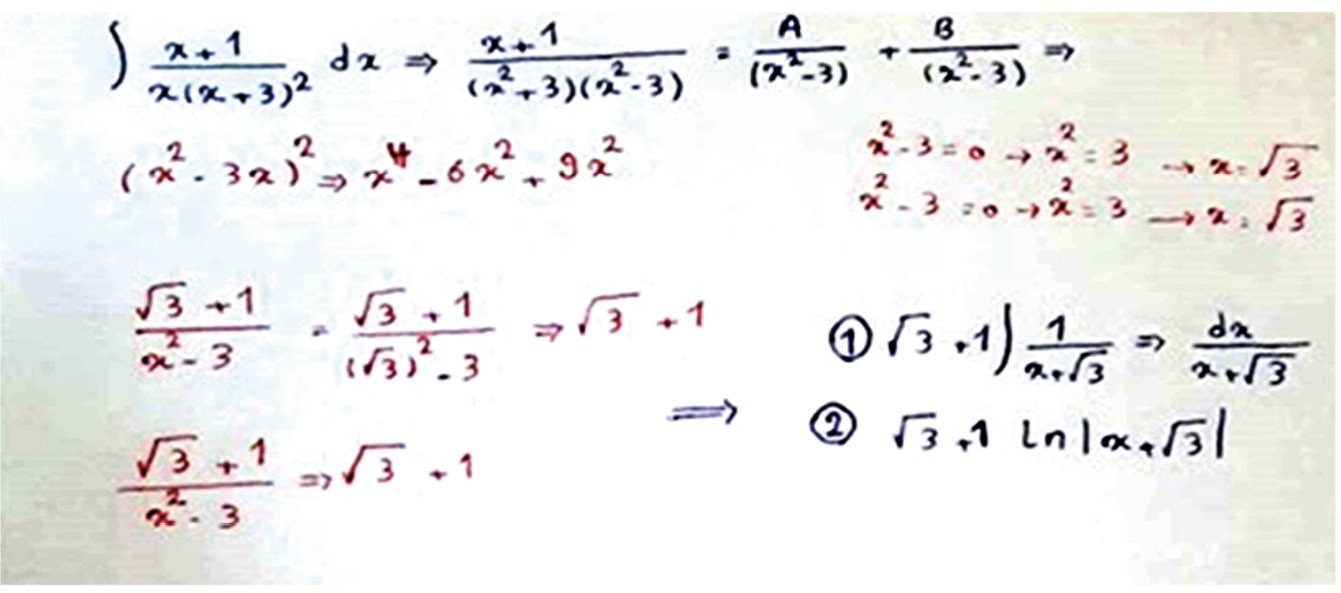 ∫ (x+1)/(x(x+3)²) dx ⇒ (x+1)/((x²+3)(x²-3)) = A/(x²-3) + B/(x²-3) ⇒
(x² - 3x)² ⇒ x⁴ - 6x² + 9x²
x² - 3 = 0 → x² = 3 → x = √3
x² - 3 = 0 → x² = 3 → x = √3
(√3 + 1)/(x² - 3) = (√3 + 1)/((√3)² - 3) ⇒ √3 + 1
(√3 + 1)/(x² - 3) ⇒ √3 + 1
⇒
① √3 + 1 ∫ 1/(x+√3) ⇒ dx/(x+√3)
② √3 + 1 Ln|x+√3|